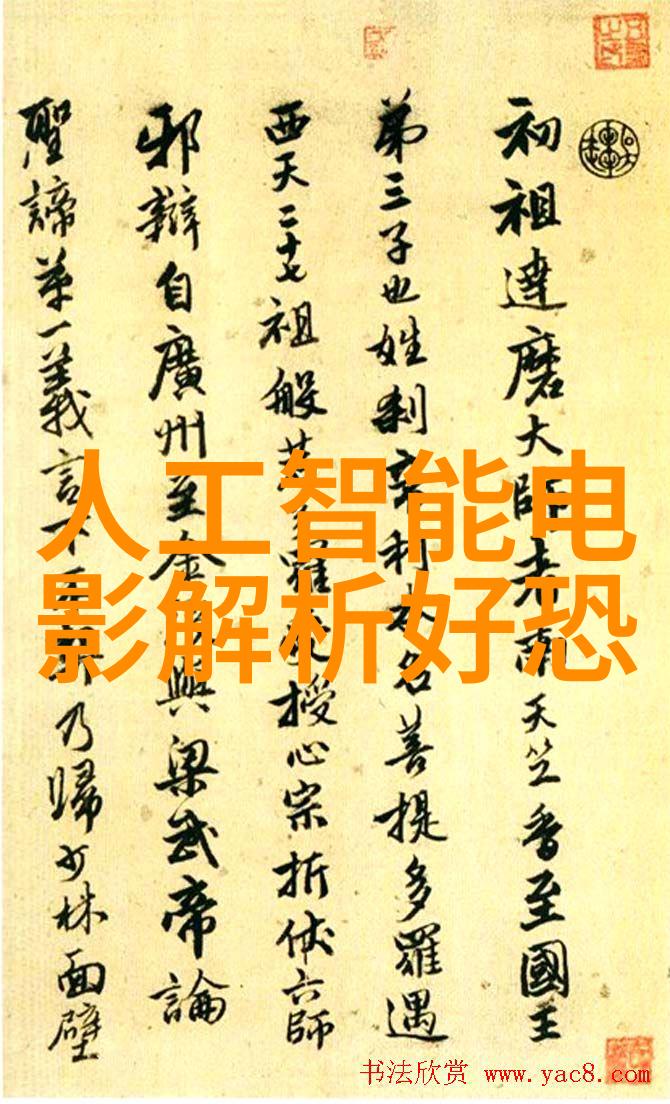 初祖達磨大師者南天竺香至國王
第三子也姓刹帝利本名菩提多羅遇
西天二十七祖般若多羅授心宗折伏六師
邪辯自廣州至金與梁武帝論
聖諦第一義言下乃歸少林面壁
人工智能电
影解析好恐
书法欣赏 www.yac8.com